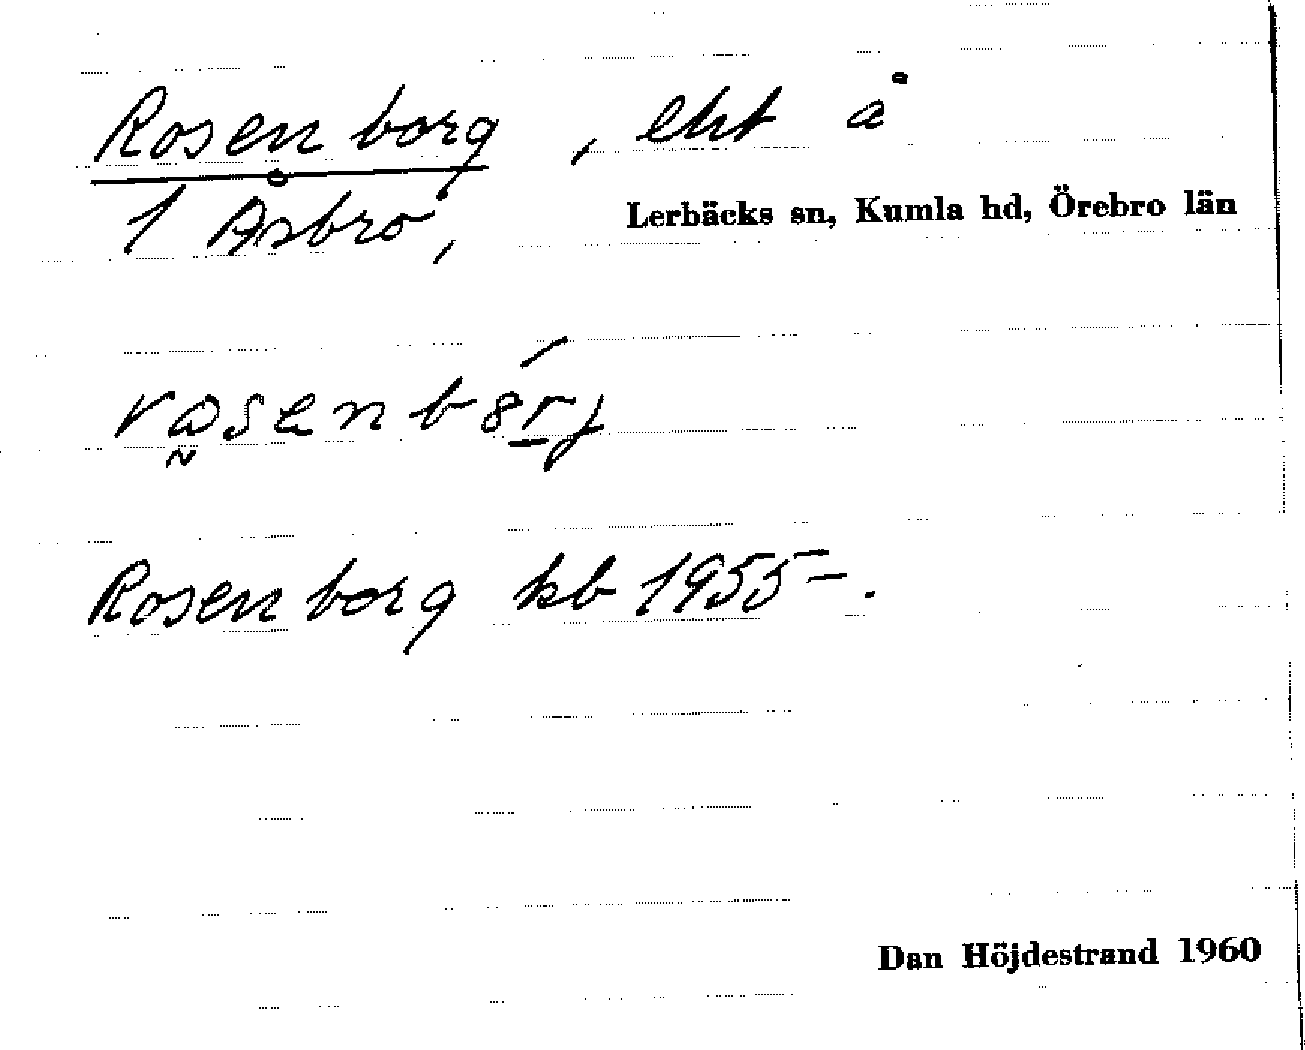 Rosenborg, eht å
1 Åsbro, Lerbäcks sn, Kumla hd, Örebro län
Rosenborg kb 1955– .
Dan Höjdestrand 1960